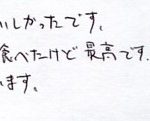 いしかったです。
食べたけど最高です。
います。